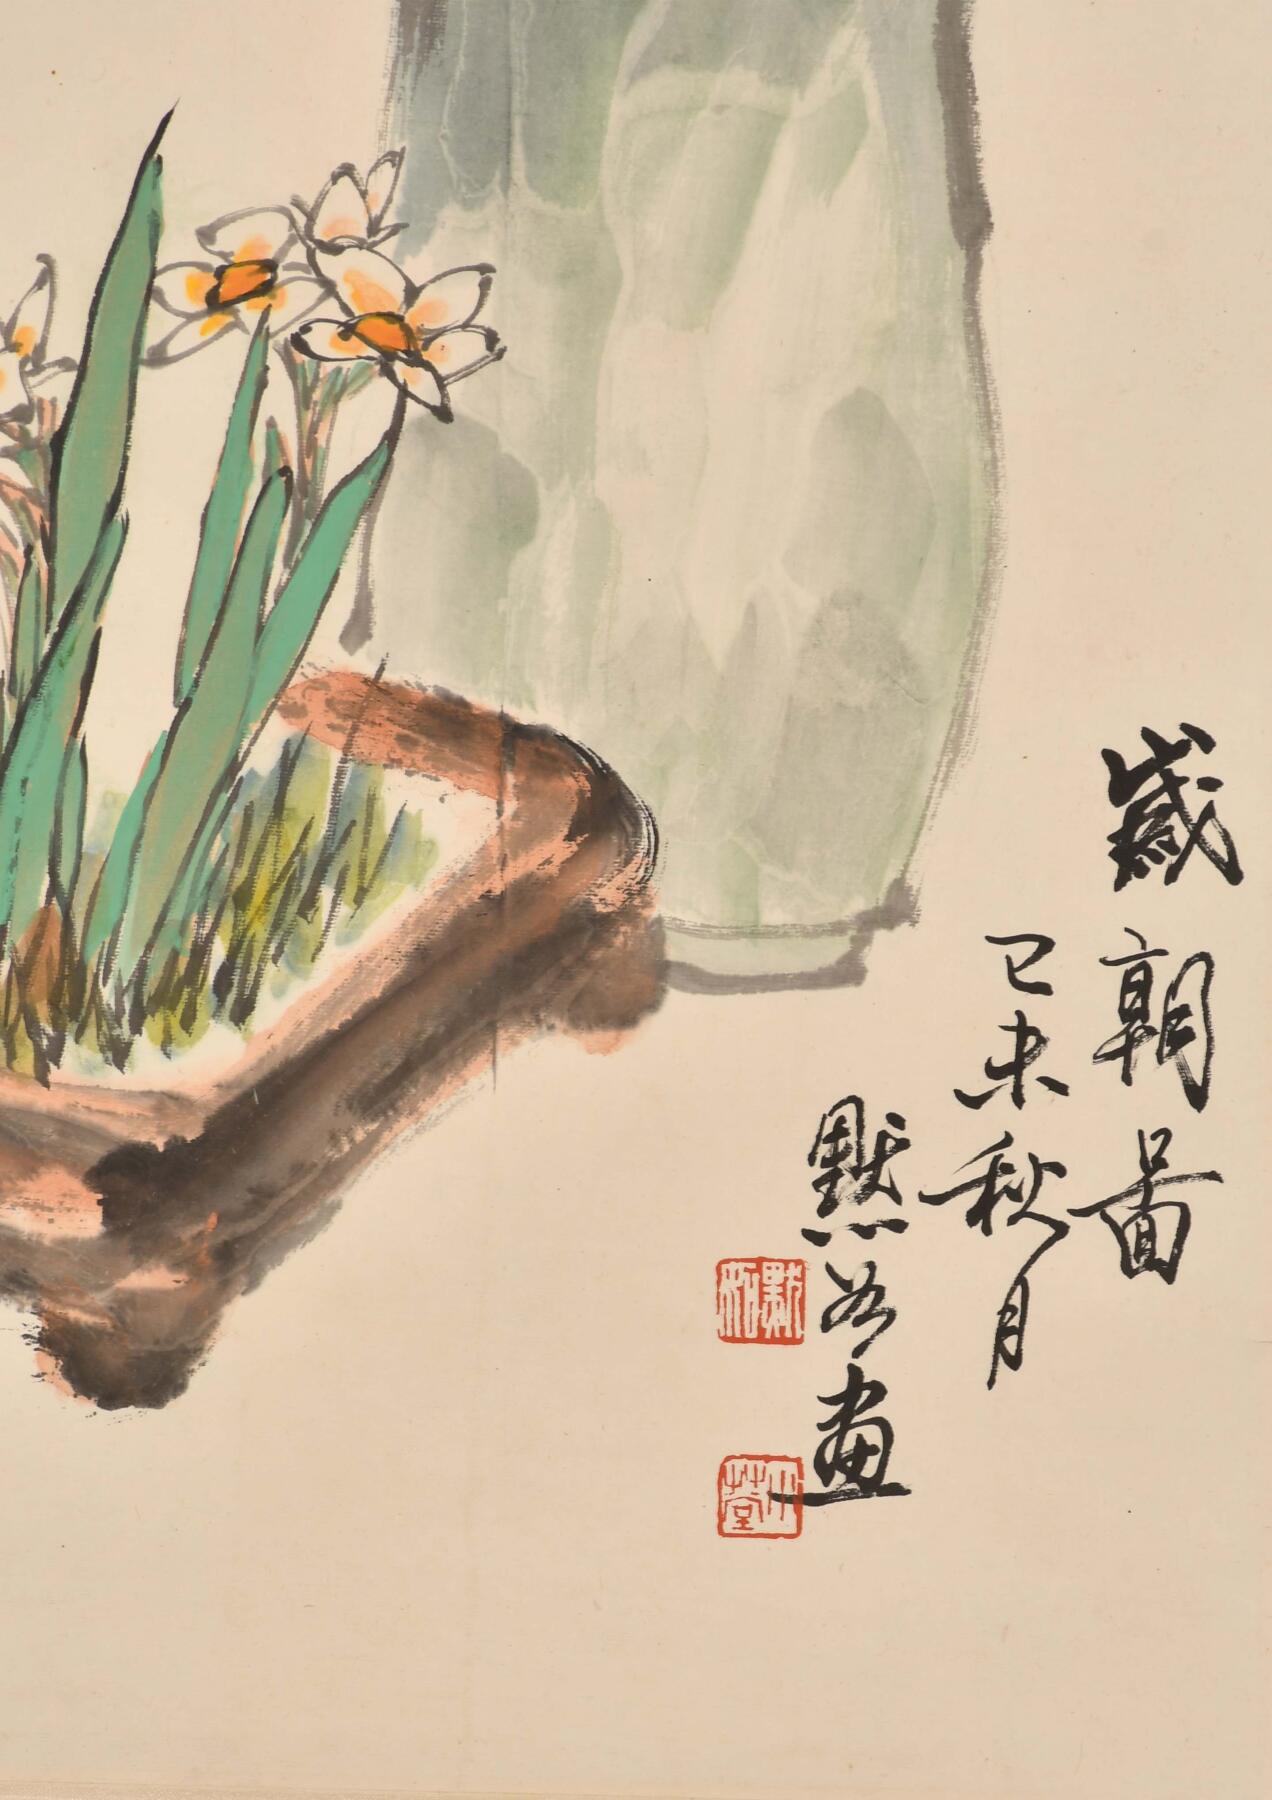 歲朝圖
己未秋月
默如畫
默如